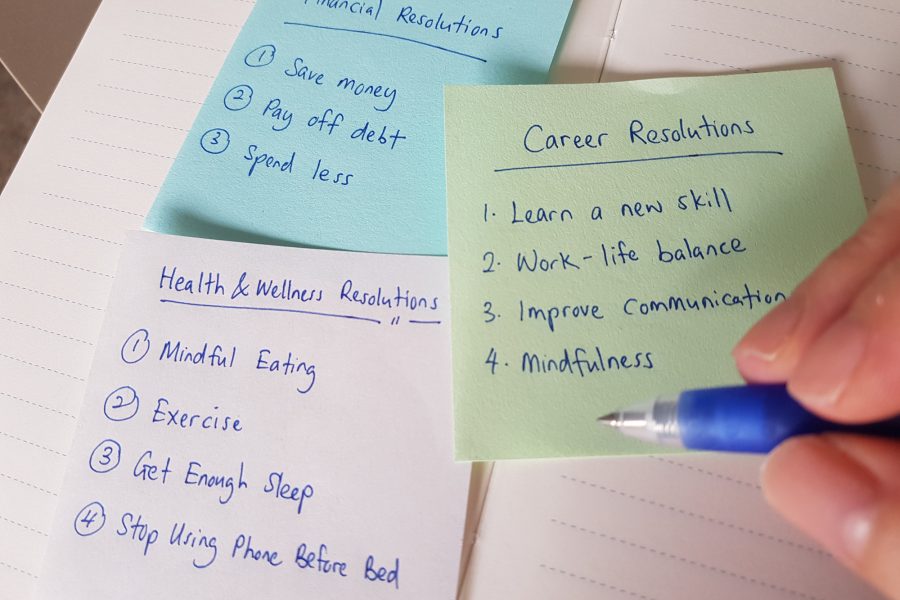 Financial Resolutions
① Save money
② Pay off debt
③ Spend less
Career Resolutions
1. Learn a new skill
2. Work-life balance
3. Improve communication
4. Mindfulness
Health & Wellness Resolutions
① Mindful Eating
② Exercise
③ Get Enough Sleep
④ Stop Using Phone Before Bed